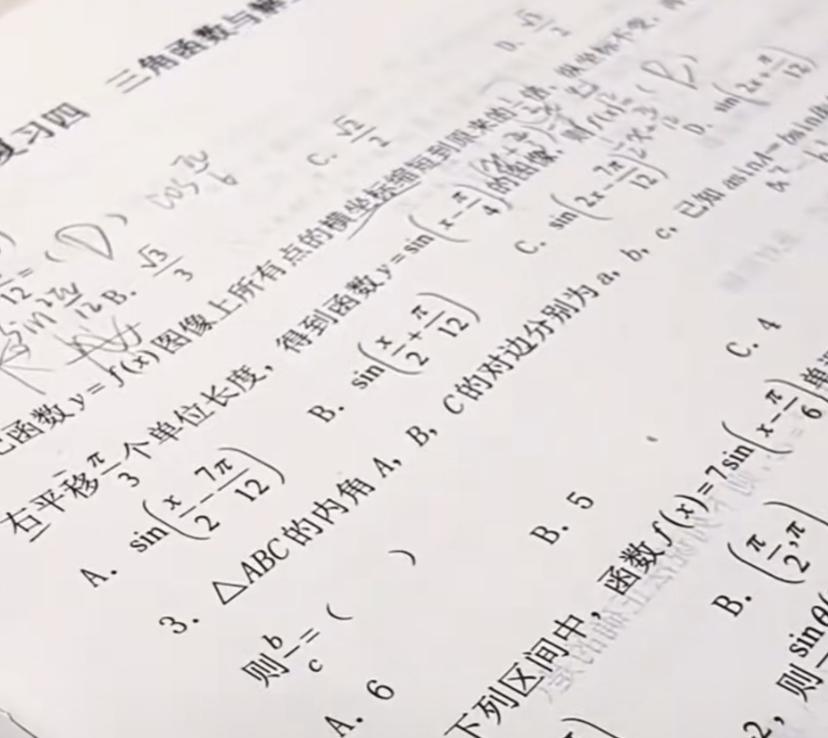 复习四 三角函数与解
D. √3/2
C. √2/2
cos π/6
12 = ( D )
B. √3/3
函数 y = f(x) 图像上所有点的横坐标缩短到原来的 1/2 倍，纵坐标不变，
右平移 π/3 个单位长度，得到函数 y = sin(x - π/4) 的图像，则 f(x) = ( B )
A. sin(x/2 - 7π/12)
B. sin(x/2 + π/12)
C. sin(2x - 7π/12)
D. sin(2x + π/12)
3. △ABC 的内角 A，B，C 的对边分别为 a，b，c，已知 asinA - bsinB
则 b/c = ( )
A. 6
B. 5
C. 4
下列区间中，函数 f(x) = 7sin(x - π/6) 单
B. (π/2, π)
2，则 sinθ(